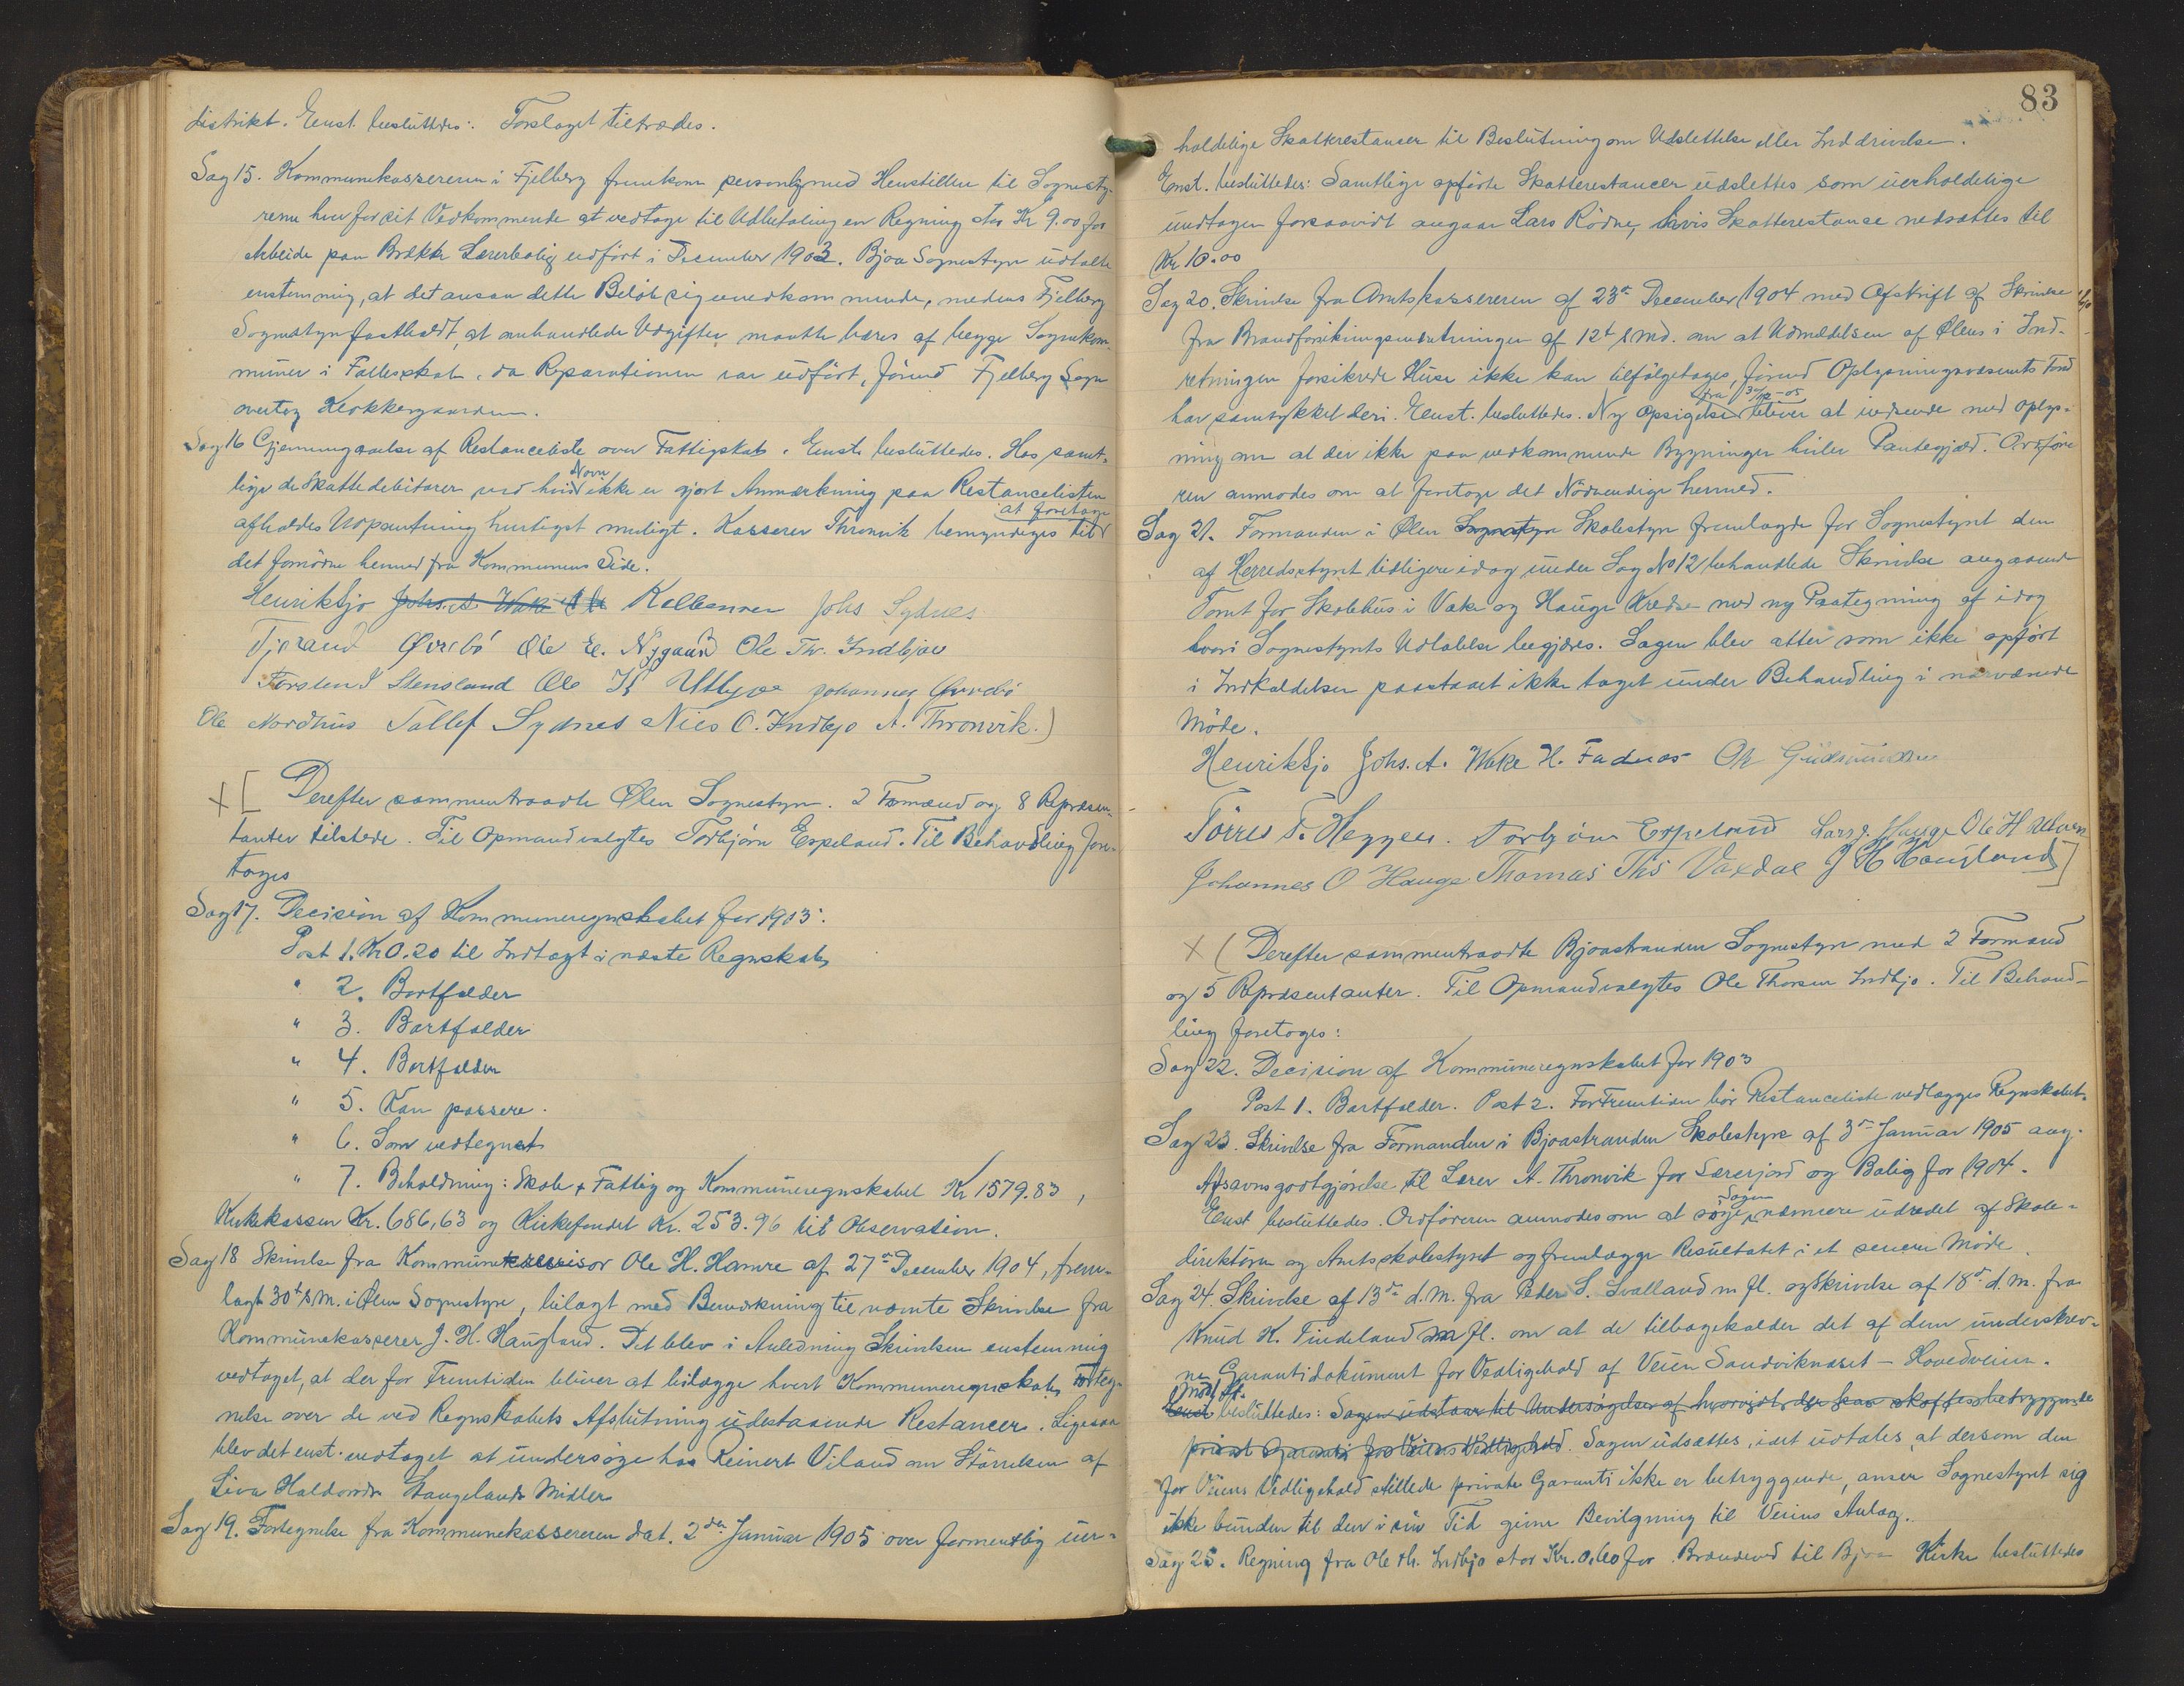 distrikt. Enst. besluttedes: Forslaget tiltrædes.
Sag 15. Kommunekassereren i Fjelberg fremkom personlig med Henstillen til Sognesty-
rerne hver for sit Vedkommende at vedtage til Udbetaling en Regning stor Kr 9.00 for
Arbeide paa Brække Lærerbolig udført i December 1903. Bjoa Sognestyre udtalte
enstemmig, at det ansaa dette Beløb sig uvedkommende, medens Fjelberg
Sognestyre fastholdt, at omhandlede Udgifter maatte bæres af begge Sognekom-
muner i Fællesskab, da Reparationen var udført, førend Fjelberg Sogn
overtog Klokkergaarden.
Sag 16 Gjennemgaaelse af Restanceliste over Fattigskat. Enst. besluttedes. Hos samt-
lige de Skattedebitorer ved hvis Navn ikke er gjort Anmærkning paa Restancelisten
afholdes Udpantning hurtigst muligt. Kasserer Thronvik bemyndiges til at foretage
det fornødne hermed fra Kommunens Side.
Henrik Sjo Johs. A. Wake Kolbensen Johs Sydnes
Tjerand Øvrebö Ole E. Nygaard Ole Th. Indbjoe
Torsten Stensland Ole K Utbjoe Johannes Øvrebö
Ole Nordhus Tollef Sydnes Nils O. Indbjo A. Thronvik.)
× [ Derefter sammentraadte Ølen Sognestyre. 2 Formænd og 8 Repræsen-
tanter tilstede. Til Opmand valgtes Torbjørn Espeland. Til Behandling fore-
toges
Sag 17. Decision af Kommuneregnskabet for 1903.
Post 1. Kr 0.20 til Indtægt i næste Regnskab
" 2. Bortfalder
" 3. Bortfalder
" 4. Bortfalder
" 5. Kan passere.
" 6. Som vedtegnet
" 7. Beholdning: Skole + Fattig og Kommuneregnskabet Kr 1579.83,
Kirkekassen Kr. 686,63 og Kirkefondet Kr. 253.96 til Observation.
Sag 18 Skrivelse fra Kommunerevisor Ole H. Hamre af 27de December 1904, frem-
lagt 30te s.M. i Ølen Sognestyre, bilagt med Bemærkning til nævnte Skrivelse fra
Kommunekasserer J. H. Haugland. Det blev i Anledning Skrivelsen enstemmig
vedtaget, at der for Fremtiden bliver at bilægge hvert Kommuneregnskab Forteg-
nelse over de ved Regnskabets Afslutning udestaaende Restancer. Ligesaa
blev det enst. vedtaget at undersøge hos Reinert Viland om Størrelsen af
Liva Haldorsdr Langelands Midler
Sag 19. Fortegnelse fra Kommunekassereren dat. 2den Januar 1905 over formentlig uer-
83
holdelige Skatterestancer til Beslutning om Udslettelse eller Inddrivelse.
Enst. besluttedes: Samtlige opførte Skatterestancer udslettes som uerholdelige
undtagen forsaavidt angaar Lars Rödne, hvis Skatterestance nedsættes til
Kr 10.00
Sag 20. Skrivelse fra Amtskassereren af 23de December 1904 med Afskrift af Skrivelse
fra Brandforsikringsindretningen af 12te s Md. om at Udmeldelsen af Ølens i Ind-
retningen forsikrede Huse ikke kan tilfølgetages, førend Oplysningsvæsenets Fond
har samtykket deri. Enst. besluttedes. Ny Opsigelse fra bliver at indsende med Oplys-
ning om at der ikke paa vedkommende Bygninger hviler Pantegjæld. Ordføre
ren anmodes om at foretage det Nødvendige hermed.
Sag 21. Formanden i Ølen Sognestyre Skolestyre fremlagde for Sognestyret den
af Herredsstyret tidligere idag under Sag No 12 behandlede Skrivelse angaaende
Tomt for Skolehus i Vake og Hauge Kredse med ny Paategning af idag
hvori Sognestyrets Udtalelse begjæres. Sagen blev atter som ikke opført
i Indkaldelsen paastaaet ikke taget under Behandling i nærværende
Møde.
Henrik Sjo Johs. A. Wake H. Fadnes Ole Gudmundsen
Törres T. Heggen. Torbjörn Espeland Lars J. Hauge Ole H Ulven
Johannes O Hauge Thomas Ths Vaxdal J H Haugland]
× ( Derefter sammentraadte Bjoastranden Sognestyre med 2 Formænd
og 5 Repræsentanter. Til Opmand valgtes Ole Thorsen Indbjo. Til Behand-
ling foretoges:
Sag 22. Decision af Kommuneregnskabet for 1903
Post 1. Bortfalder. Post 2. For Fremtiden bør Restanceliste vedlægges Regnskabet.
Sag 23. Skrivelse fra Formanden i Bjoastranden Skolestyre af 3de Januar 1905 ang.
Afsavnsgodtgjørelse til Lærer A. Thronvik for Lærerjord og Bolig for 1904.
Enst besluttedes. Ordføreren anmodes om at søge Sagen nærmere udredet af Skole-
direktøren og Amtsskolestyret og fremlægge Resultatet i et senere Møde.
Sag 24. Skrivelse af 13de d.M. fra Peder S. Svalland m fl. og Skrivelse af 18de d.M. fra
Knud K. Tindeland m fl. om at de tilbagekalder det af dem underskrev-
ne Garantidokument for Vedligehold af Veien Sandviknæset – Hovedveien.
Enst Mod besluttedes: Sagen udstaar til Undersøgelse af hvorvidt der kan skaffes betryggende
privat Garanti for Veiens Vedligehold. Sagen udsættes, idet udtales, at dersom den
for Veiens Vedligehold stillede private Garanti ikke er betryggende, anser Sognestyret sig
ikke bunden til den i sin Tid givne Bevilgning til Veiens Anlæg.
Sag 25. Regning fra Ole Th. Indbjo stor Kr. 0.60 for Brændeved til Bjoa Kirke besluttedes